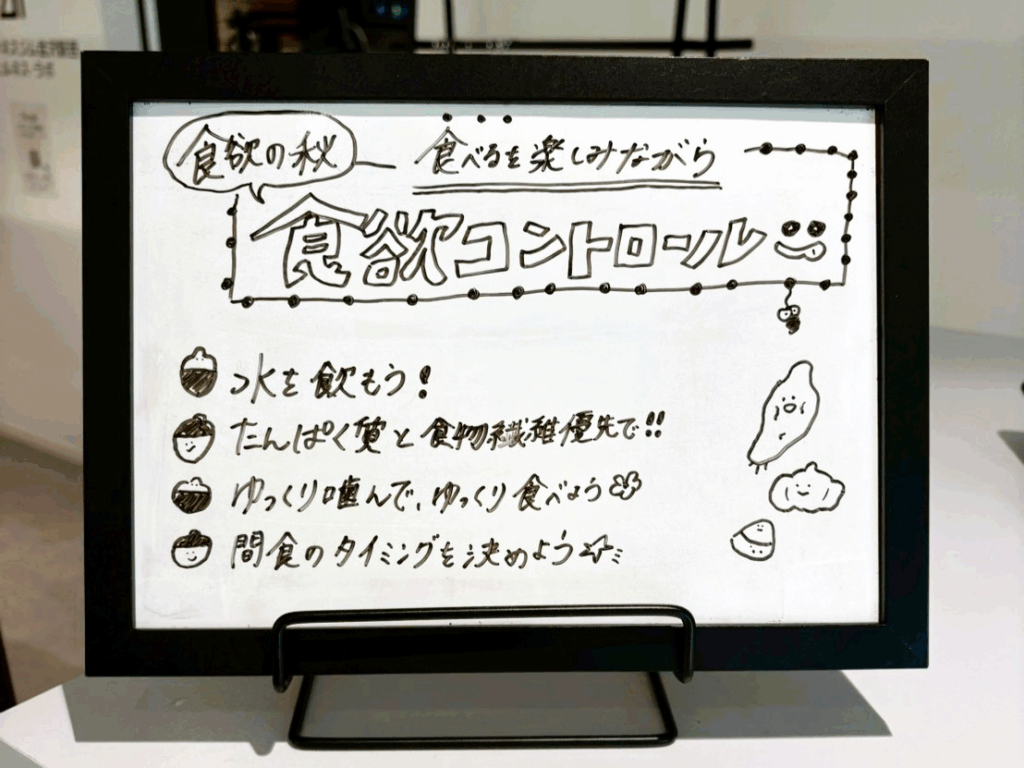 食欲の秋
食べるを楽しみながら
食欲コントロール
水を飲もう!
たんぱく質と食物繊維優先で!!
ゆっくり噛んで、ゆっくり食べよう
間食のタイミングを決めよう